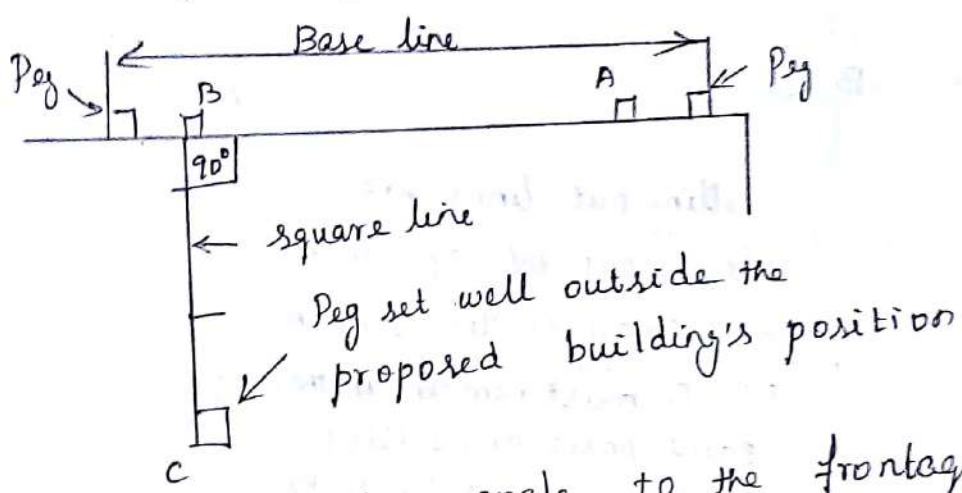 Base line
Peg
B
A
Peg
90°
square line
Peg set well outside the
proposed building's position
C
angle to the frontag